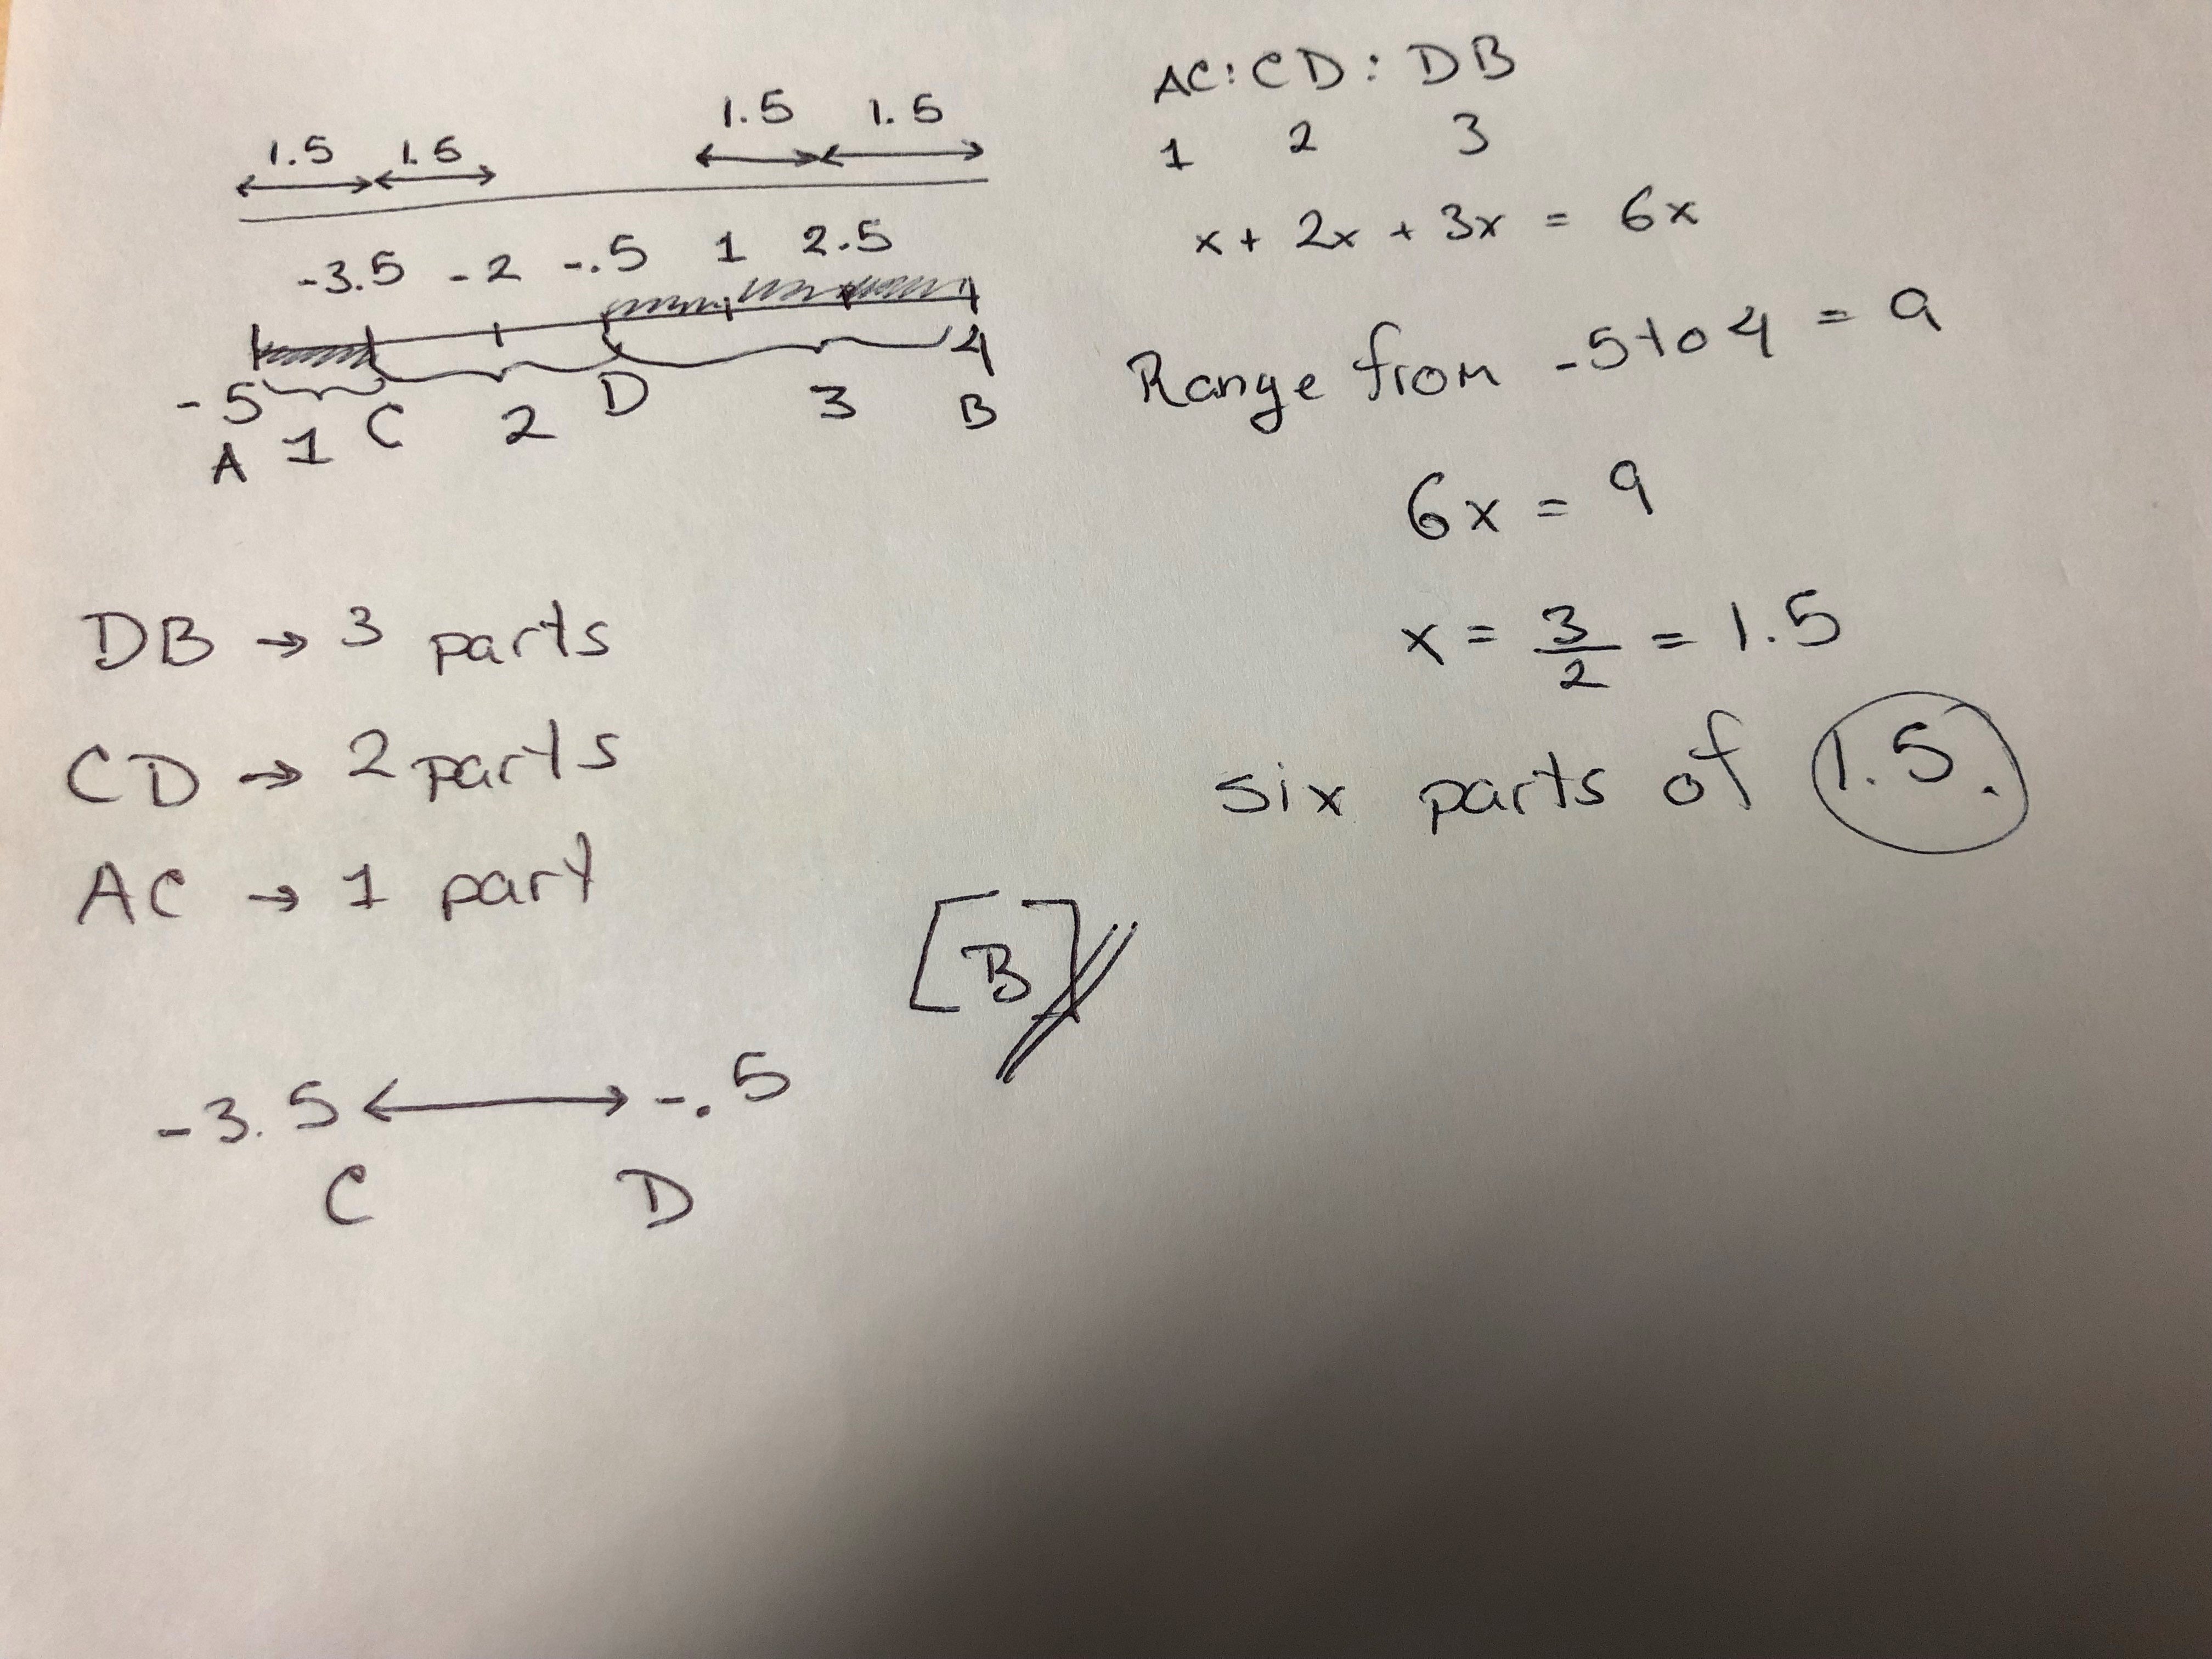 1.5 1.5 1.5 1.5
-3.5 -2 -.5 1 2.5
-5 C D 4
A 1 2 3 B
AC : CD : DB
1 2 3
x + 2x + 3x = 6x
Range from -5 to 4 = 9
6x = 9
x = 3/2 = 1.5
six parts of 1.5.
DB → 3 parts
CD → 2 parts
AC → 1 part
[B]
-3.5 ↔ -.5
C D